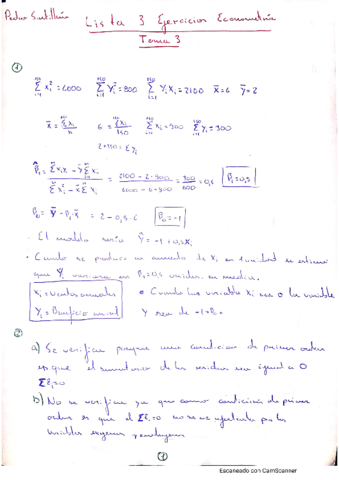 Pedro Santillán
Lista 3 Ejercicios Econometría
Tema 3
①
∑ xi² = 6000  ∑ Yi² = 800  ∑ Yi Xi = 2100  x̄ = 6  ȳ = 2
x̄ = ∑xi / n  6 = ∑xi / 150  ∑ xi = 900  ∑ yi = 300
2·150 = ∑ yi
β̂1 = ∑ xiyi - ȳ∑xi / ∑ xi² - x̄∑ xi = 2100 - 2·900 / 6000 - 6·900 = 300 / 600 = 0,5  β̂1 = 0,5
β̂0 = ȳ - β1 x̄ = 2 - 0,5·6  β̂0 = -1
· El modelo sería Ŷ = -1 + 0,5Xi
· Cuando se produce un aumento de Xi en 1 unidad se estima
que Yi variará en β1 = 0,5 unidades en media.
Xi = Ventas anuales
Yi = Beneficio anual
· Cuando la variable Xi sea 0 la variable
Y será de -1 = β0
②
a) Se verifica porque una condición de primer orden
es que el sumatorio de los residuos sea igual a 0
∑ε̂i = 0
b) No se verifica ya que como condición de primer
orden es que el ∑ε̂i = 0 no se ve afectada por las
variables
①
Escaneado con CamScanner